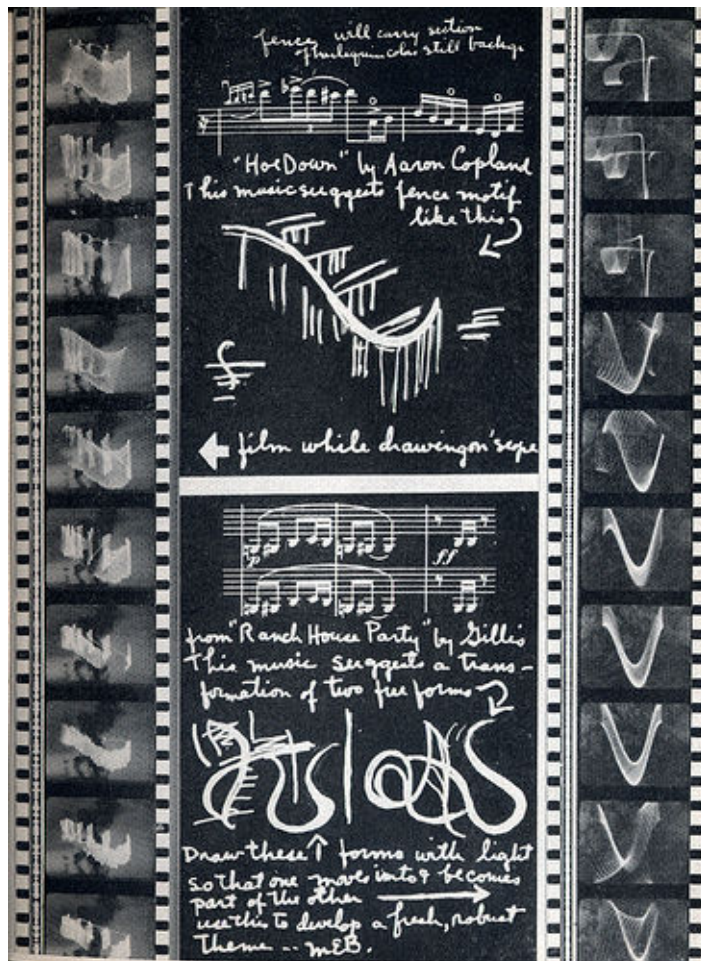 fence will carry section
of harlequin color still backgr
"HoeDown" by Aaron Copland
This music suggests fence motif
like this
film while drawing on 'scope
p
ff
from "Ranch House Party" by Gillis
This music suggests a trans-
formation of two free forms
Draw these forms with light
so that one moves into & becomes
part of the other
use this to develop a fresh, robust
theme -- MEB.